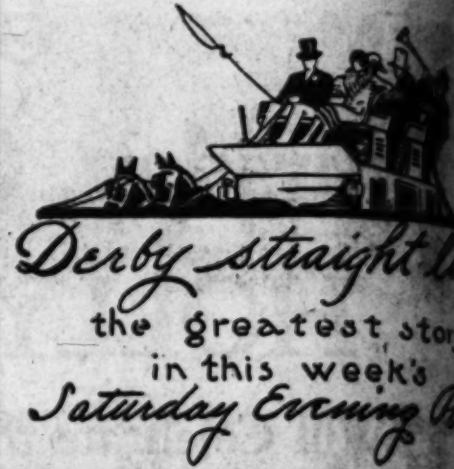 Derby straight
the greatest
in this week's
Saturday Evening